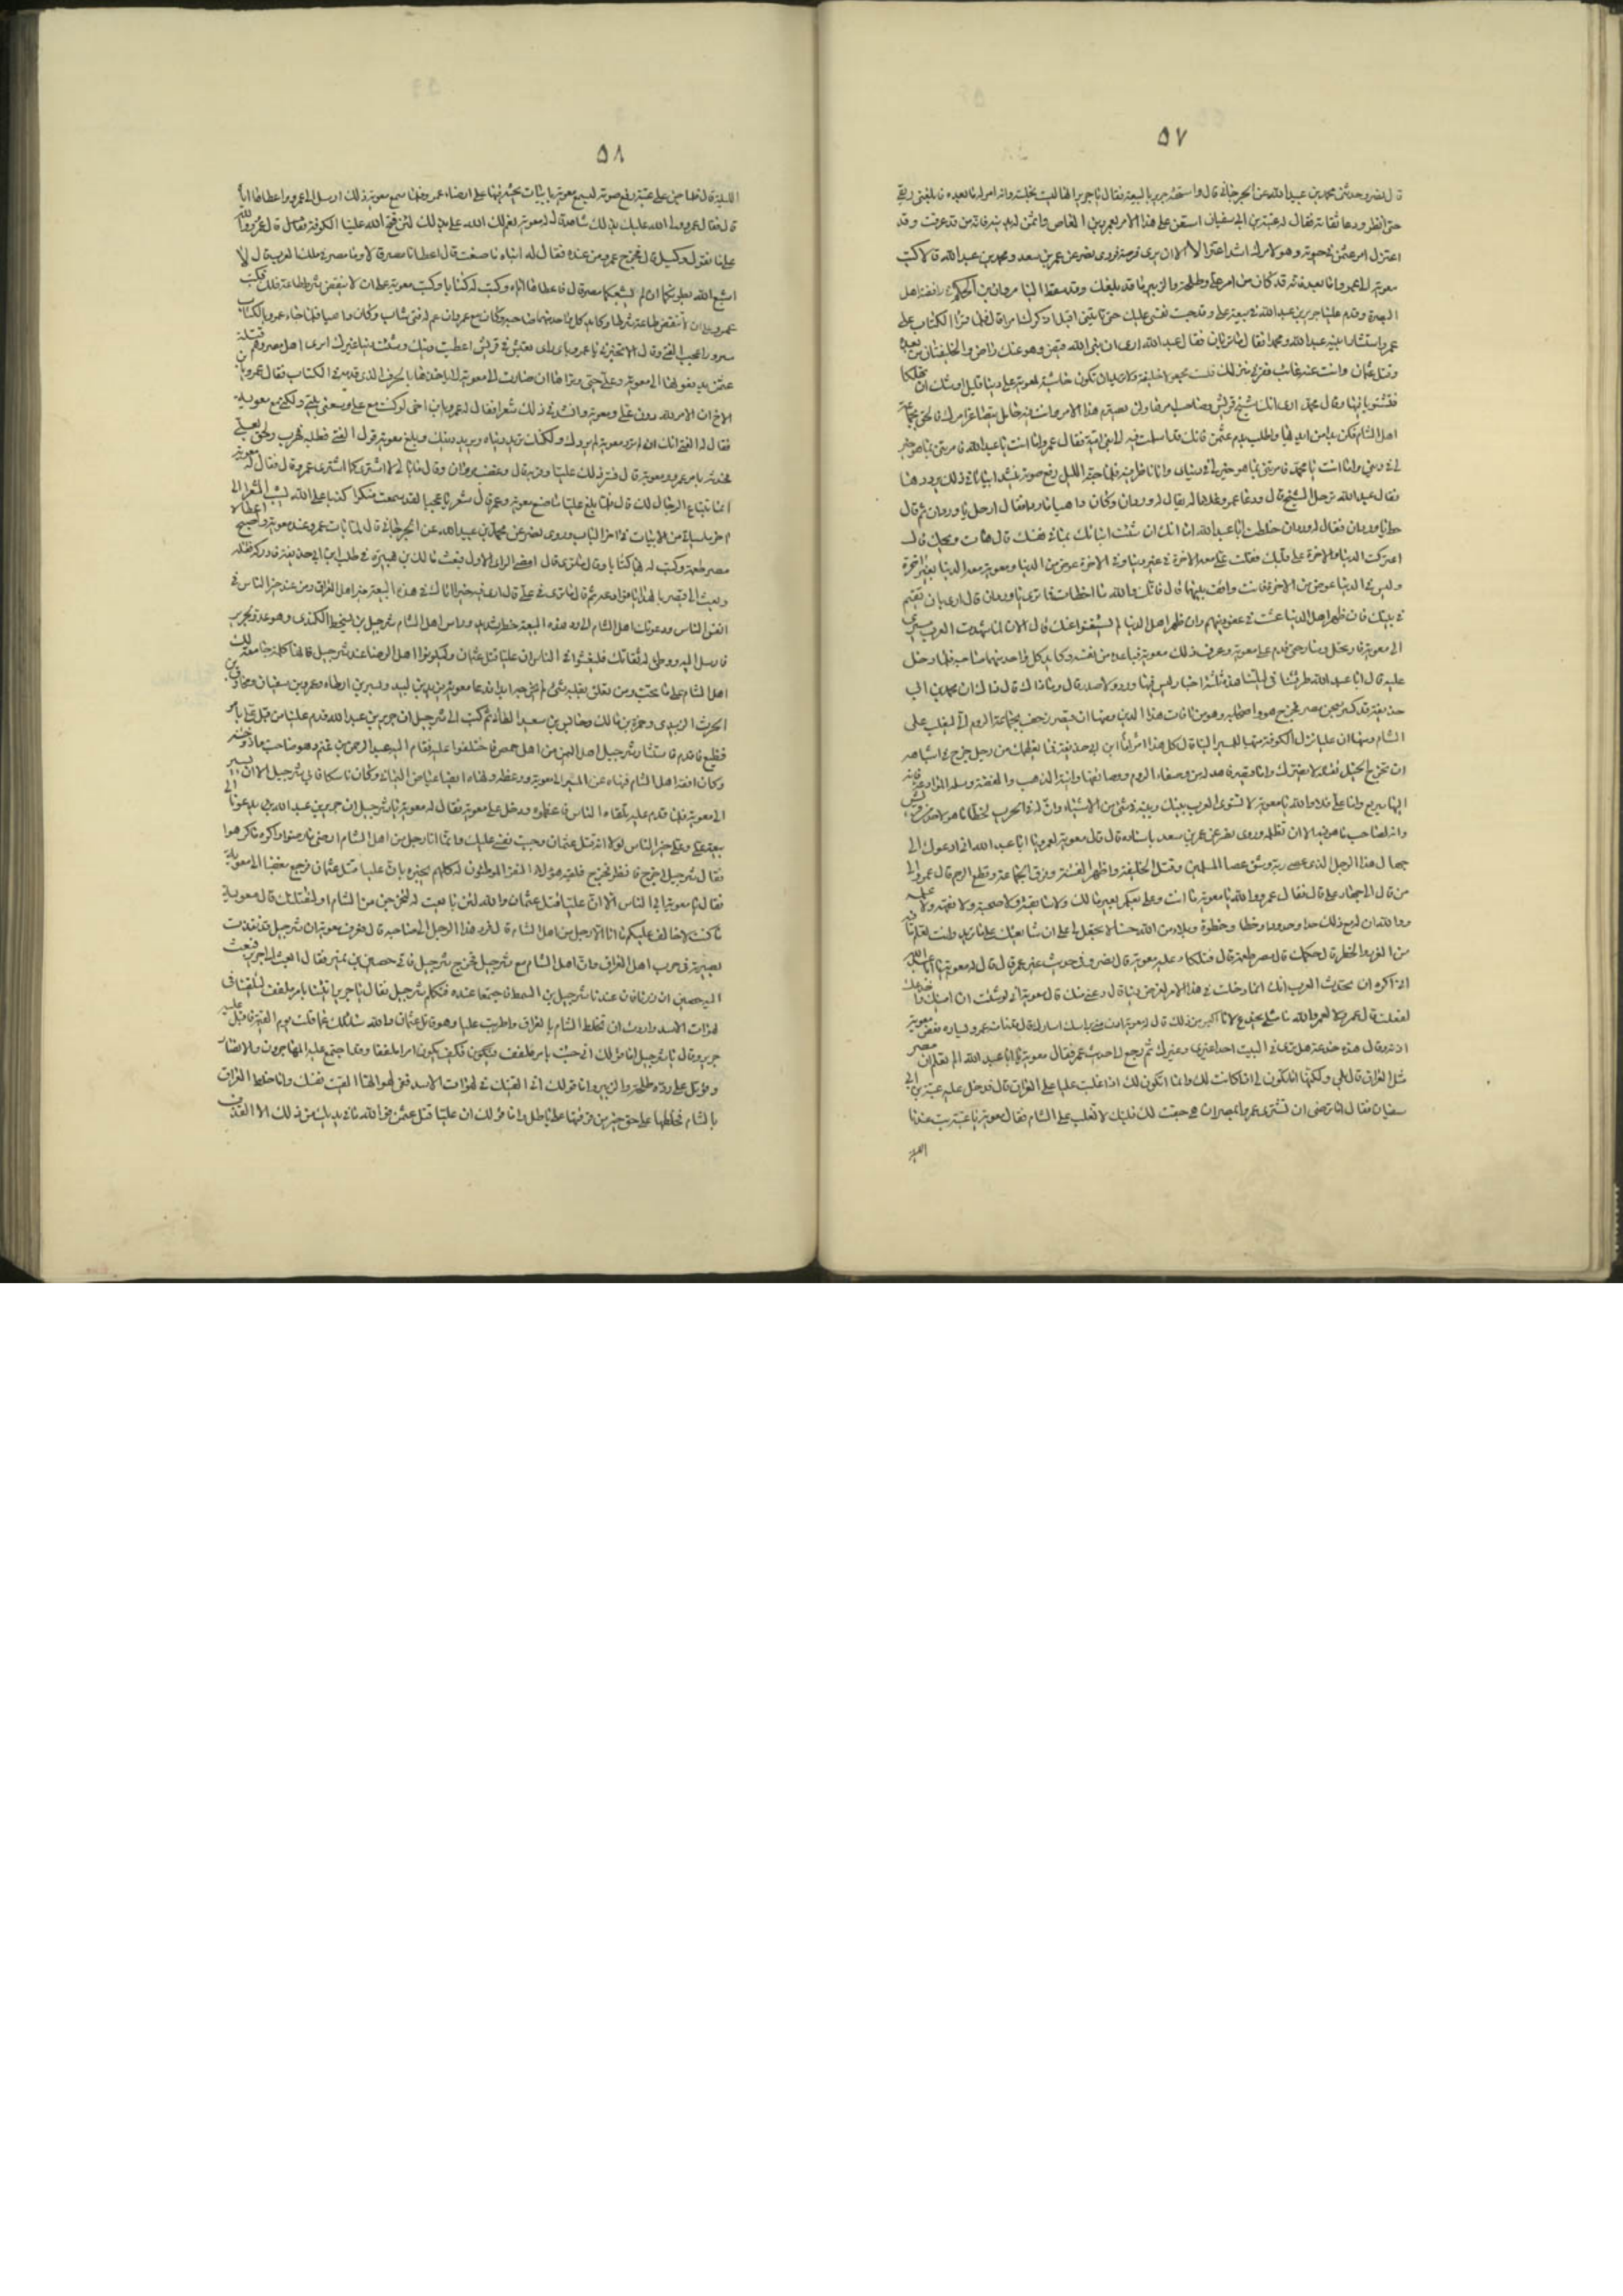 ٥٧
قال نصر وحدثنى محمد بن عبيد الله عن الجرجانى قال واستحثه جرير بالبيعة فقال يا جرير انها ليست بخلسة وانه امر له ما بعده فابلعنى ريقى
حتى انظر ودعا ثقاته فقال له عتبة بن ابى سفيان استعن على هذا الامر بعمرو بن العاص واثمن له بدينه فانه من قد عرفت وقد
اعتزل امر عثمن فى حيوته وهو لامرك اشد اعتزالا الا ان يرى فرصة فروى نصر عن عمر بن سعد ومحمد بن عبيد الله قالا كتب
معوية الى عمرو اما بعد فانه قد كان من امر على وطلحة والزبير ما قد بلغك وقد سقط الينا مروان بن الحكم فى رافضة اهل
البصرة وقدم علينا جرير بن عبد الله فى بيعة على وقد حبست نفسى عليك حتى تاتينى اقبل اذاكرك امرا قال فلما قرا الكتاب على
عمرو استشار ابنيه عبد الله ومحمدا فقال ما تريان فقال عبد الله ارى ان نبى الله قبض وهو عنك راض والخليفتان من بعده
وقتل عثمان وانت عنه غائب فقر فى منزلك فلست مجعولا خليفة ولا تريد ان تكون حاشية لمعوية على دنيا قليلة اوشك ان تهلكا
فتشقيا فيها وقال محمد ارى انك شيخ قريش وصاحب امرها وان تصرم هذا الامر وانت فيه خامل يتصاغر امرك فالحق بجماعة
اهل الشام فكن يدا من ايديها واطلب بدم عثمن فانك قد استلمت فيه الى بنى امية فقال عمرو اما انت يا عبد الله فامرتنى بما هو خير
لى فى دينى واما انت يا محمد فامرتنى بما هو خير لى فى دنياى وانا ناظر فيه فلما جنه الليل رفع صوته ينشد ابياتا فى ذلك يرددها
فقال عبد الله ترحل الشيخ قال ودعا عمرو غلاما له يقال له وردان وكان داهيا ماردا فقال ارحل يا وردان ثم قال
حط يا وردان فقال له وردان خلطت ابا عبد الله اما انك ان شئت انباتك بما فى نفسك قال هات ويحك قال
اعتركت الدنيا والاخرة على قلبك فقلت على معه الاخرة فى غير دنيا وفى الاخرة عوض من الدنيا ومعوية معه الدنيا بغير اخرة
وليس فى الدنيا عوض من الاخرة فانت واقف بينهما قال فانك والله ما اخطات فما ترى يا وردان قال ارى بان تقيم
فى بيتك فان ظهر اهل الدين عشت فى عفو دينهم وان ظهر اهل الدنيا لم يستغنوا عنك قال الان لما شهدت العرب مسيرى
الى معوية فارتحل وسار حتى قدم على معوية وعرف ذلك معوية فباعده من نفسه وكايد كل واحد منهما صاحبه فلما دخل
عليه قال ابا عبد الله طرقتنا فى ليلتنا هذه ثلثة اخبار ليس فيها ورد ولا صدر قال وما ذاك قال ذاك ان محمد بن ابى
حذيفة قد كسر سجن مصر فخرج هو واصحابه وهو من افات هذا الدين ومنها ان قيصر زحف بجماعة الروم الى ليغلب على
الشام ومنها ان عليا نزل الكوفة متهيا للمسير الينا قال كل هذا امرا ابن ابى حذيفة فما يعظمك من رجل خرج فى اشباهه
ان تخرج الخيل تقتله لا يضرك واما قيصر فاهد له من وصفاء الروم ووصايفها وانية الذهب والفضة وسله الموادعة فانه
اليها سريع واما على فلا والله يا معوية لا تستوى العرب بينك وبينه فى شىء من الاشياء وان له فى الحرب لحظا ما هو لاحد من قريش
وانه لصاحب ما هو فيه الا ان تظلمه وروى نصر عن عمر بن سعد باسناده قال قال معوية لعمرو يا ابا عبد الله انى ادعوك الى
جهاد هذا الرجل الذى عصى ربه وشق عصا المسلمين وقتل الخليفة واظهر الفتنة وفرق الجماعة وقطع الرحم قال عمرو الى
من قال الى جهاد على قال فقال عمرو والله يا معوية ما انت وعلى بعكمى بعير مالك ولا سابقته ولا صحبته ولا فقهه ولا علمه
ووالله ان له مع ذلك حدا وحدودا وحظا وحظوة وبلاء من الله حسنا فما تجعل لى على ان شايعتك على ما تريد وانت تعلم ما فيه
من الغرر والخطر قال حكمك قال مصر طعمة قال فتلكا عليه معوية قال نصر وفى حديث غير عمر قال قال له معوية يا ابا عبد الله
انى اكره ان يتحدث العرب انك انما دخلت فى هذا الامر لغرض دنيا قال دعنى منك قال معوية انى لو شئت ان امنيك واخدعك
لفعلت قال عمرو لا لعمر والله ما مثلى يخدع لانا اكيس من ذلك قال له معوية ادن منى براسك اسارك قال فدنا منه عمرو ليساره فعض معوية
اذنه وقال هذه خدعة هل ترى فى البيت احدا غيرى وغيرك ثم رجع الى حديث عمر فقال معوية يا ابا عبد الله الم تعلم ان مصر
مثل العراق قال بلى ولكنها انما تكون لى اذا كانت لك وانما تكون لك اذا غلبت عليا على العراق قال فدخل عليه عتبة بن ابى
سفيان فقال اما ترضى ان تشترى عمروا بمصر ان هى صفت لك فليتك لا تغلب على الشام فقال معوية يا عتبة بت عندنا
الليلة
٥٨
الليلة قال فلما جن على عتبة رفع صوته ليسمع معوية بابيات يحثه فيها على ارضاء عمرو فلما سمع معوية ذلك ارسل الى عمرو واعطاها اياه
قال فقال عمرو ولى الله عليك بذلك شاهد قال له معوية نعم لك الله على بذلك لئن فتح الله علينا الكوفة فقال قال عمرو والله
على ما نقول وكيل قال فخرج عمرو من عنده فقال له ابناه ما صنعت قال اعطانا مصر قالا وما مصر فى ملك العرب قال لا
اشبع الله بطونكما ان لم يشبعكما مصر قال فاعطاها اياه وكتب له كتابا وكتب معوية على ان لا ينقض شرط طاعة فكتب
عمرو على ان لا تنقض طاعة شرطا وكايد كل واحد منهما صاحبه وكان مع عمرو ابن عم له فتى شاب وكان داهيا فلما جاء عمرو بالكتاب
مسرورا عجب الفتى وقال الا تخبرنى يا عمرو باى راى تعيش فى قريش اعطيت دينك ومنيت دنيا غيرك اترى اهل مصر وهم قتلة
عثمن يدفعونها الى معوية وعلى حى وتراها ان صارت الى معوية لا ياخذها بالحرف الذى قدمه فى الكتاب فقال عمرو يا بن
الاخ ان الامر لله دون على ومعوية وانشد فى ذلك شعرا فقال له عمرو يا بن اخى لو كنت مع على وسعنى بيتى ولكنى مع معوية
فقال له الفتى انك ان لم ترد معوية لم يردك ولكنك تريد دنياه ويريد دينك وبلغ معوية قول الفتى فطلبه فهرب ولحق بعلى
فحدثه بامر عمرو ومعوية قال فسر ذلك عليا وقربه قال وغضب مروان وقال ما بالى لا اشترى كما اشترى عمرو قال فقال له معوية
انما نبتاع الرجال لك قال فلما بلغ عليا ما صنع معوية وعمرو قال شعر يا عجبا لقد سمعت منكرا كذبا على الله يشيب الشعرا الى
اخر ما سياتى من الابيات فى اخر الباب وروى نصر عن محمد بن عبيد الله عن الجرجانى قال لما بات عمرو عند معوية واصبح اعطاه
مصر طعمة وكتب له بها كتابا وقال ما ترى قال امض الراى الاول فبعث مالك بن هبيرة فى طلب ابن ابى حذيفة فادركه فقتله
وبعث الى قيصر بالهدايا فوادعه ثم قال ما ترى فى على قال ارى فيه خيرا اتاك فى هذه البيعة خير اهل العراق ومن عند خير الناس فى
انفس الناس ودعوتك اهل الشام الى رد هذه البيعة خطر شديد وراس اهل الشام شرحبيل بن السمط الكندى وهو عدو لجرير
فارسل اليه ووطن له ثقاتك فليفشوا فى الناس ان عليا قتل عثمان وليكونوا اهل الرضا عند شرحبيل فانها كلمة جامعة لك
اهل الشام على ما تحب وان تعلق بقلبه شىء لم يخرجه ابدا فدعا معوية يزيد بن لبيد وبسر بن ارطاه وعمرو بن سفيان ومخارق بن
الحرث الزبيدى وحمزة بن مالك وحابس بن سعد الطائى ثم كتب الى شرحبيل ان جرير بن عبد الله قدم علينا من قبل على بامر
فظيع فاقدم فاستشار شرحبيل اهل اليمن من اهل حمص فاختلفوا عليه فقام اليه عبد الرحمن بن غنم وهو صاحب معاذ وختنه
وكان افقه اهل الشام فنهاه عن المسير الى معوية ووعظه ونهاه ايضا عياض اليمانى وكان ناسكا فابى شرحبيل الا ان يسير
الى معوية فلما قدم عليه تلقاه الناس فاعظموه ودخل على معوية فقال له معوية يا شرحبيل ان جرير بن عبد الله يدعونا الى
بيعة على وعلى خير الناس لولا انه قتل عثمان وحبست نفسى عليك وانما انا رجل من اهل الشام ارضى ما رضوا واكره ما كرهوا
فقال شرحبيل اخرج فانظر فخرج فلقيه هؤلاء النفر الموطئون له كلهم يخبره بان عليا قتل عثمان فرجع مغضبا الى معوية
فقال يا معوية ابى الناس الا ان عليا قتل عثمان والله لئن بايعت له لنخرجنك من الشام او لنقتلنك قال معوية
ما كنت لاخالف عليكم ما انا الا رجل من اهل الشام قال فرد هذا الرجل الى صاحبه قال فعرف معوية ان شرحبيل قد نفذت
بصيرته فى حرب اهل العراق وان اهل الشام مع شرحبيل فخرج شرحبيل فاتى حصين بن نمير فقال ابعث الى جرير فبعث
اليه حصين ان زرنا فان عندنا شرحبيل بن السمط فاجتمعا عنده فتكلم شرحبيل فقال يا جرير اتيتنا بامر ملفف لتلقينا فى
لهوات الاسد واردت ان تخلط الشام بالعراق واطريت عليا وهو قاتل عثمان والله سائلك عما قلت يوم القيمة فاقبل عليه
جرير وقال يا شرحبيل اما قولك انى جئت بامر ملفف فكيف يكون امرا ملففا وقد اجتمع عليه المهاجرون والانصار
وقوتل على رده طلحة والزبير واما قولك انى القيتك فى لهوات الاسد ففى لهواتها القيت نفسك واما خلط العراق
بالشام فخلطها على حق خير من فرقتها على باطل واما قولك ان عليا قتل عثمن فوالله ما فى يديك من ذلك الا القذف